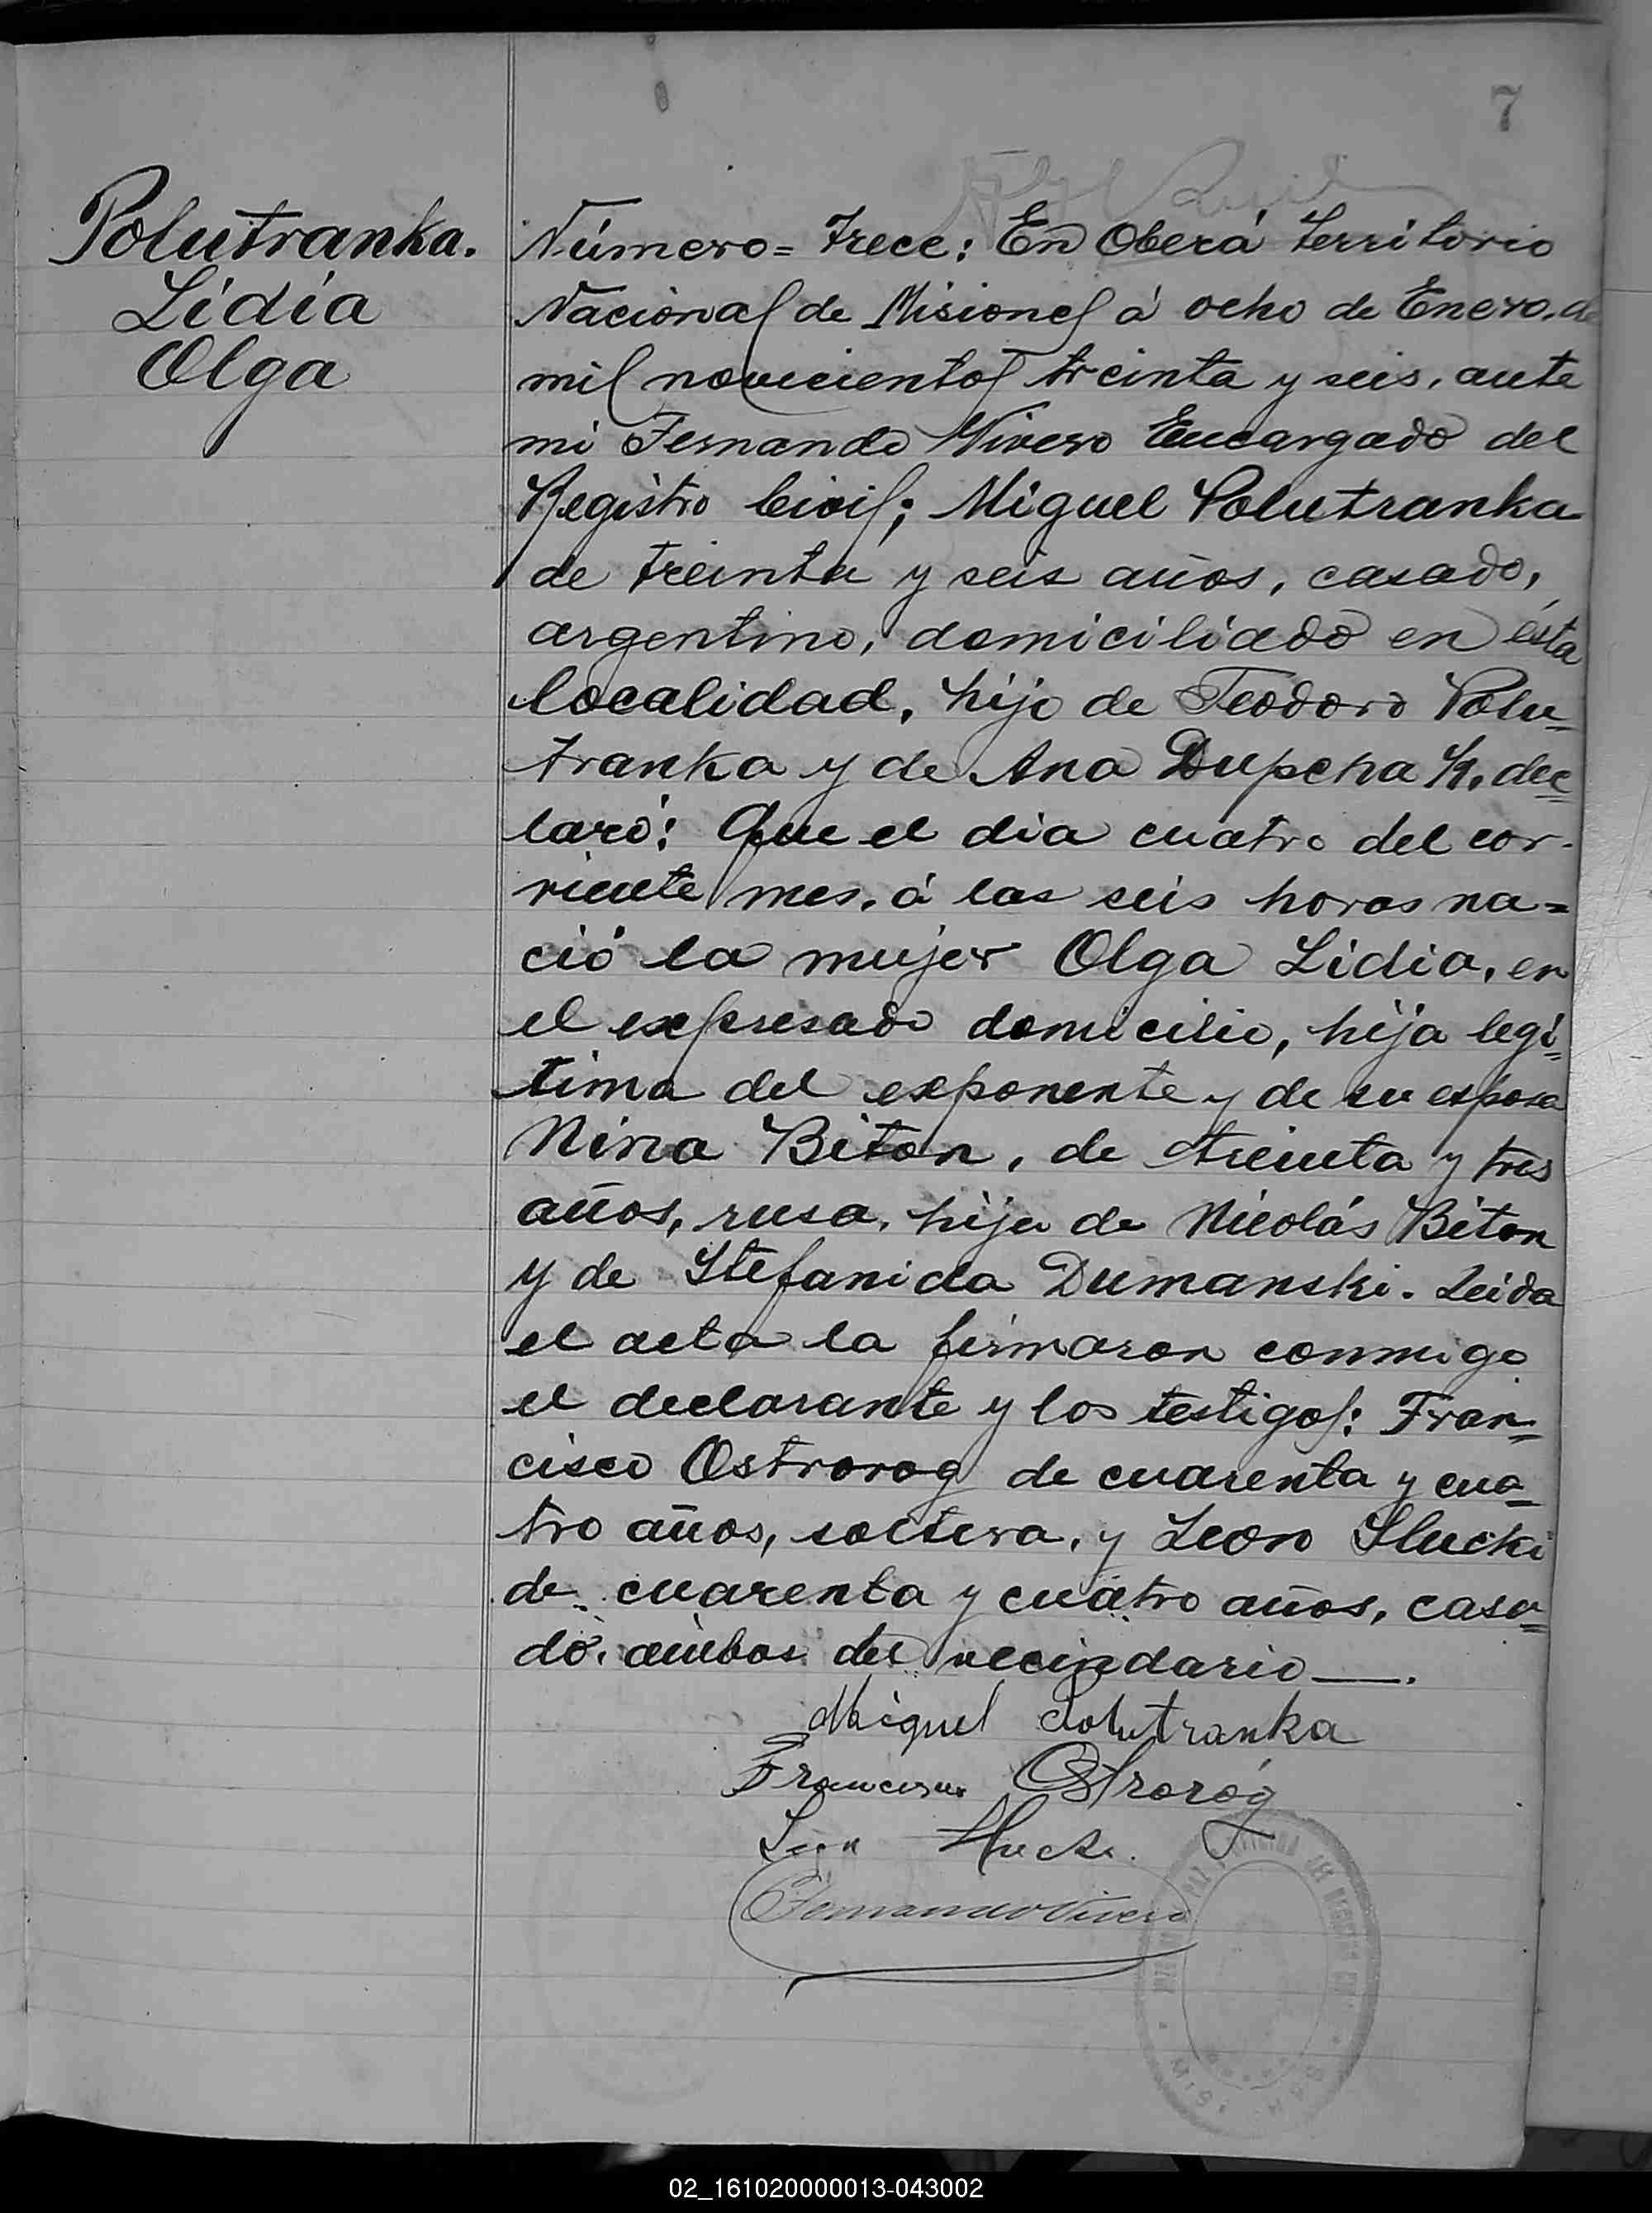 7
Polutranka.
Lidia
Olga
Número = Trece: En Oberá Territorio
Nacional de Misiones á ocho de Enero, de
mil novecientos treinta y seis, ante
mi Fernando Vivero Encargado del
Registro Civil; Miguel Polutranka
de treinta y seis años, casado,
argentino, domiciliado en ésta
localidad, hijo de Teodoro Polu=
tranka y de Ana Dupcha, dec=
laró: Que el dia cuatro del cor-
riente mes, á las seis horas na=
ció la mujer Olga Lidia, en
el expresado domicilio, hija legi=
tima del exponente y de su esposa
Nina Biton, de treinta y tres
años, rusa, hija de Nicolás Biton
y de Stefanida Dumanski. Leida
el acta la firmaron conmigo
el declarante y los testigos: Fran=
cisco Ostrorog de cuarenta y cua=
tro años, soltero, y Leon Slucki
de cuarenta y cuatro años, casa=
do, ambos del vecindario —.
Miguel Polutranka
Ostroróg
Leon Slucki.
Fernando Vivero
02_161020000013-043002